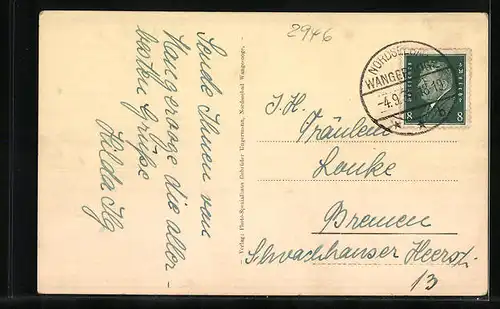 2946
Sende Ihnen von
Wangerooge die aller-
besten Grüße
Hilda Ilg.
Verlag: Photo-Spezialhaus Gebrüder Ungermann, Nordseebad Wangerooge.
NORDSEEBAD
WANGEROOGE
-4.9.
8 8
I. H.
Fräulein
Lonke
Bremen
Schwachhauser Heerst.
13